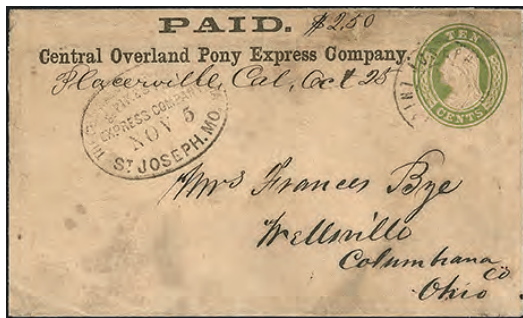 PAID. $2.50
Central Overland Pony Express Company.
Placerville, Cal, Oct 25
EXPRESS COMPANY
NOV 5
ST JOSEPH. MO.
TEN
CENTS
Mrs Frances Bye
Wellsville
Columbiana
Co
Ohio